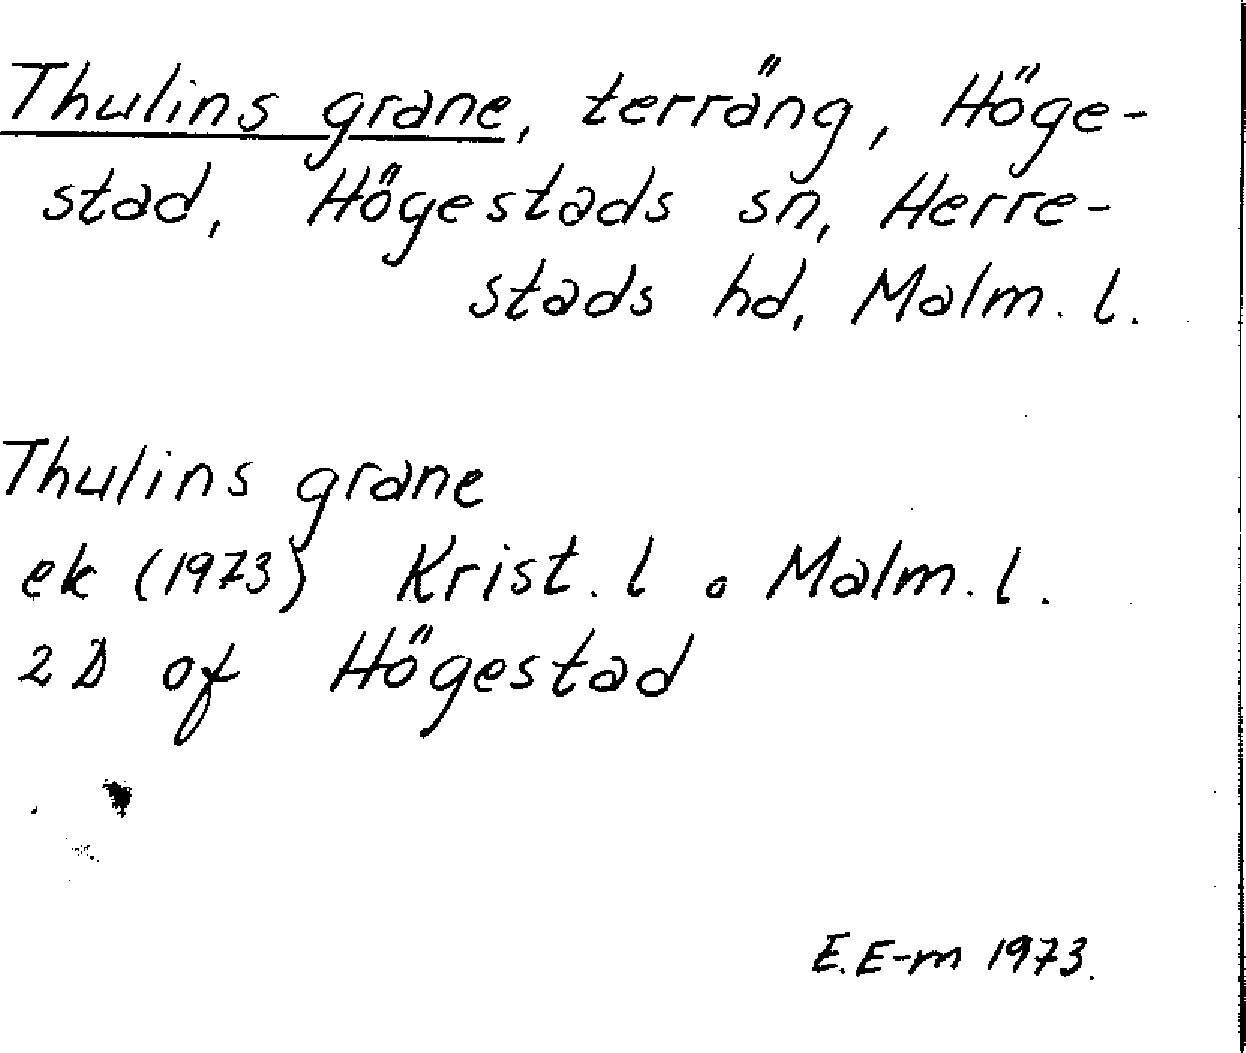 Thulins grane, terräng, Höge-
stad, Högestads sn, Herre-
stads hd, Malm. l.
Thulins grane
ek (1973) Krist. l o Malm. l.
2D of Högestad
E. E-m 1973.